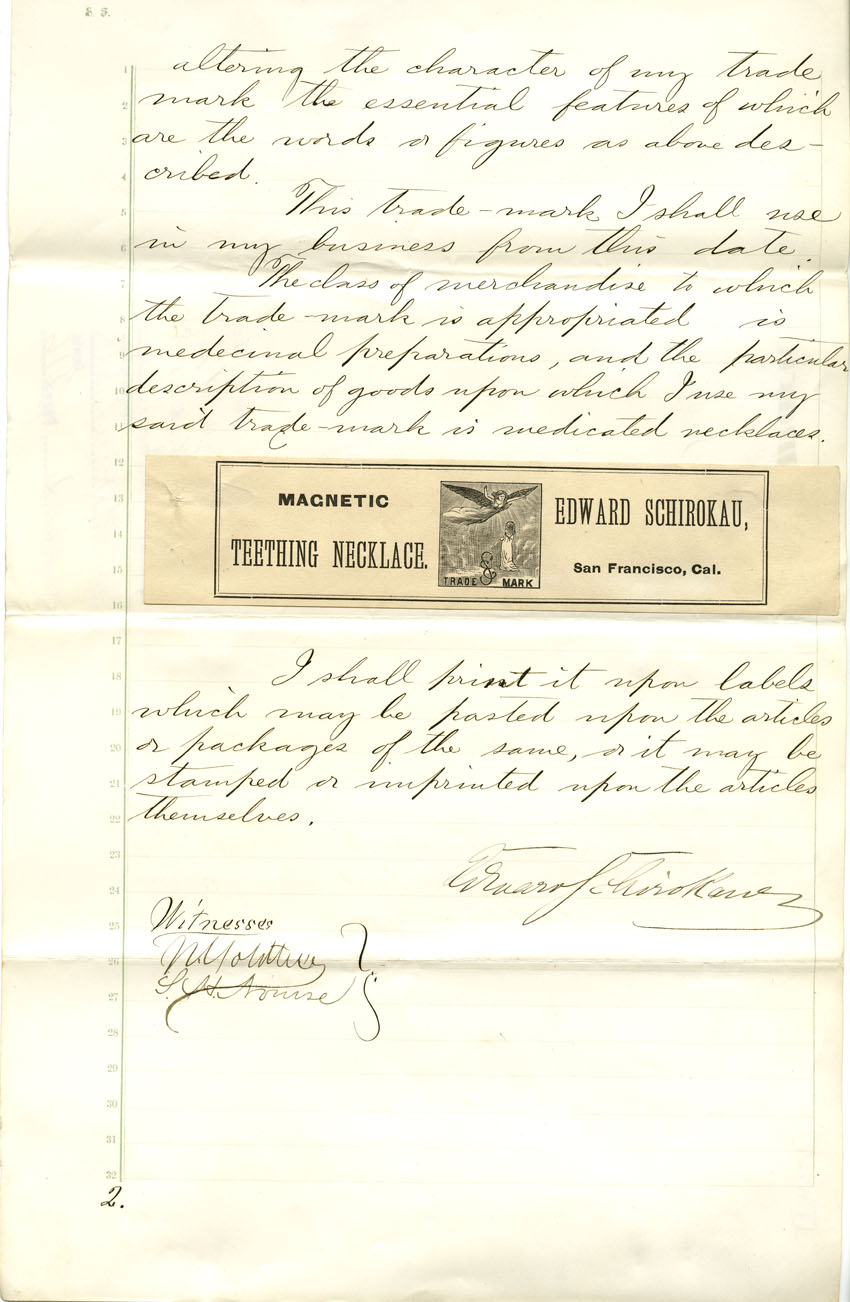 altering the character of my trade
mark the essential features of which
are the words or figures as above des-
cribed.
This trade-mark I shall use
in my business from this date.
The class of merchandise to which
the trade-mark is appropriated is
medecinal preparations, and the particular
description of goods upon which I use my
said trade-mark is medicated necklaces.
MAGNETIC
TEETHING NECKLACE.
TRADE MARK
EDWARD SCHIROKAU,
San Francisco, Cal.
I shall print it upon labels
which may be pasted upon the articles
or packages of the same, or it may be
stamped or imprinted upon the articles
themselves.
Eduard Schirokauer
Witnesses
S. H. Nourse
1
2
3
4
5
6
7
8
9
10
11
12
13
14
15
16
17
18
19
20
21
22
23
24
25
26
27
28
29
30
31
32
2.